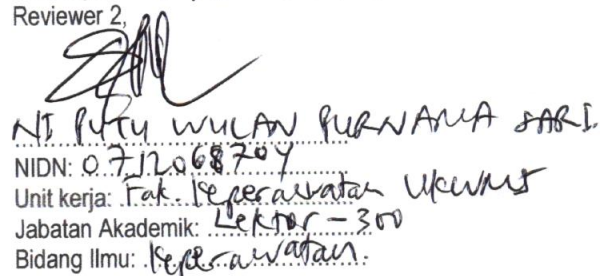 Reviewer 2,
NI PUTU WULAN PURNAMA SARI.
NIDN: 0712068704
Unit kerja: Fak. Keperawatan UKWMS
Jabatan Akademik: Lektor - 300
Bidang Ilmu: Keperawatan.